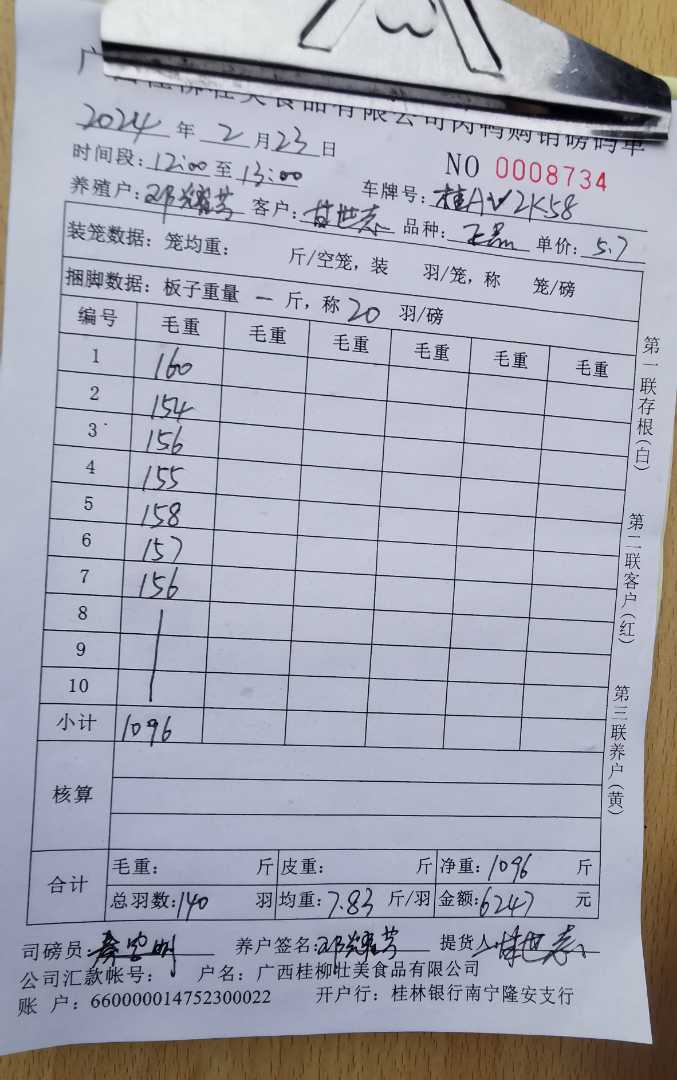 广西桂柳壮美食品有限公司肉鸭购销磅码单
2024年2月23日
NO 0008734
时间段:12:00至13:00
车牌号:桂AV2K58
养殖户: 客户:甘世志 品种: 单价:5.7
装笼数据:笼均重: 斤/空笼,装 羽/笼,称 笼/磅
捆脚数据:板子重量 一 斤,称20 羽/磅
编号 毛重 毛重 毛重 毛重 毛重 毛重
1 160
2 154
3 156
4 155
5 158
6 157
7 156
8
9
10
小计 1096
核算
合计 毛重: 斤 皮重: 斤 净重:1096 斤
总羽数:140 羽 均重:7.83 斤/羽 金额:6247 元
司磅员: 养户签名: 提货人:甘世志
公司汇款帐号: 户名:广西桂柳壮美食品有限公司
账 户:660000014752300022 开户行:桂林银行南宁隆安支行
第一联存根(白)
第二联客户(红)
第三联养户(黄)